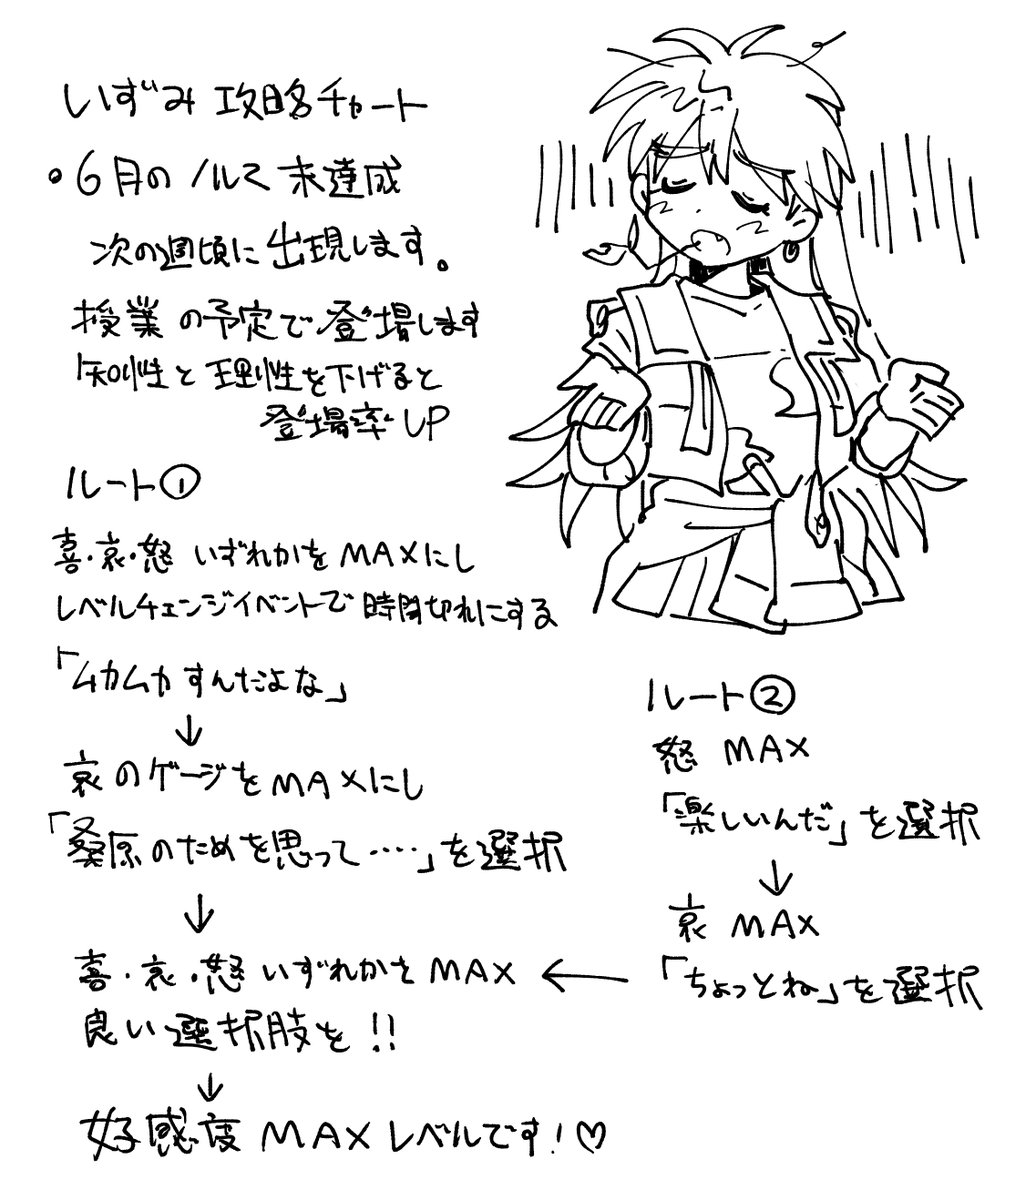 いずみ 攻略チャート
・6月のノルマ 未達成
次の週頃に出現します。
授業の予定で登場します
知性と理性を下げると
登場率UP
ルート①
喜・哀・怒 いずれかをMAXにし
レベルチェンジイベントで時間切れにする
「ムカムカすんだよな」
↓
哀のゲージをMAXにし
「桑原のためを思って・・・・」を選択
↓
喜・哀・怒いずれかをMAX
良い選択肢を!!
↓
好感度MAXレベルです!♡
ルート②
怒 MAX
「楽しいんだ」を選択
↓
哀 MAX
←「ちょっとね」を選択